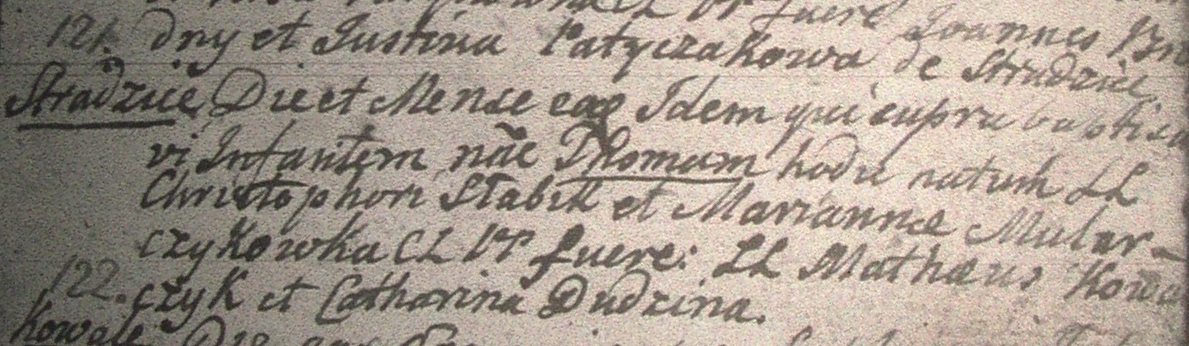 fuere Joannes
121. dny et Justina Patyczakowa de Stradzice
Stradzice Die et Mense eod Idem qui supra baptisa
vi Infantem nãe Thomam hodie natum LL
Christophori Stabik et Mariannæ Mular-
czykowka CL Pr fuere: LL Mathæus Kowa
122. czyk et Catharina Dudzina.
Kowale